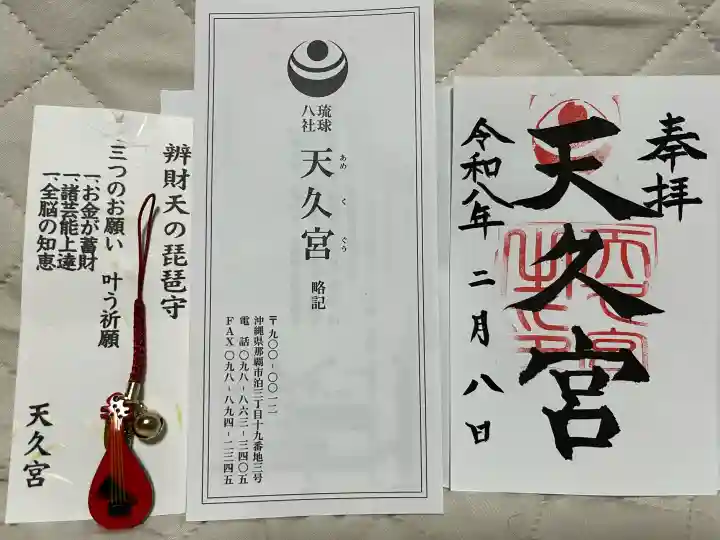 奉拝
天久宮
令和八年二月八日
琉球
八社
天久宮
あめくぐう
略記
〒九〇〇-〇〇一二
沖縄県那覇市泊三丁目十九番地三号
電話〇九八-八六三-三四〇五
FAX〇九八-八九四-二三四五
辨財天の琵琶守
三つのお願い 叶う祈願
一、お金が蓄財
一、諸芸能上達
一、全脳の知恵
天久宮